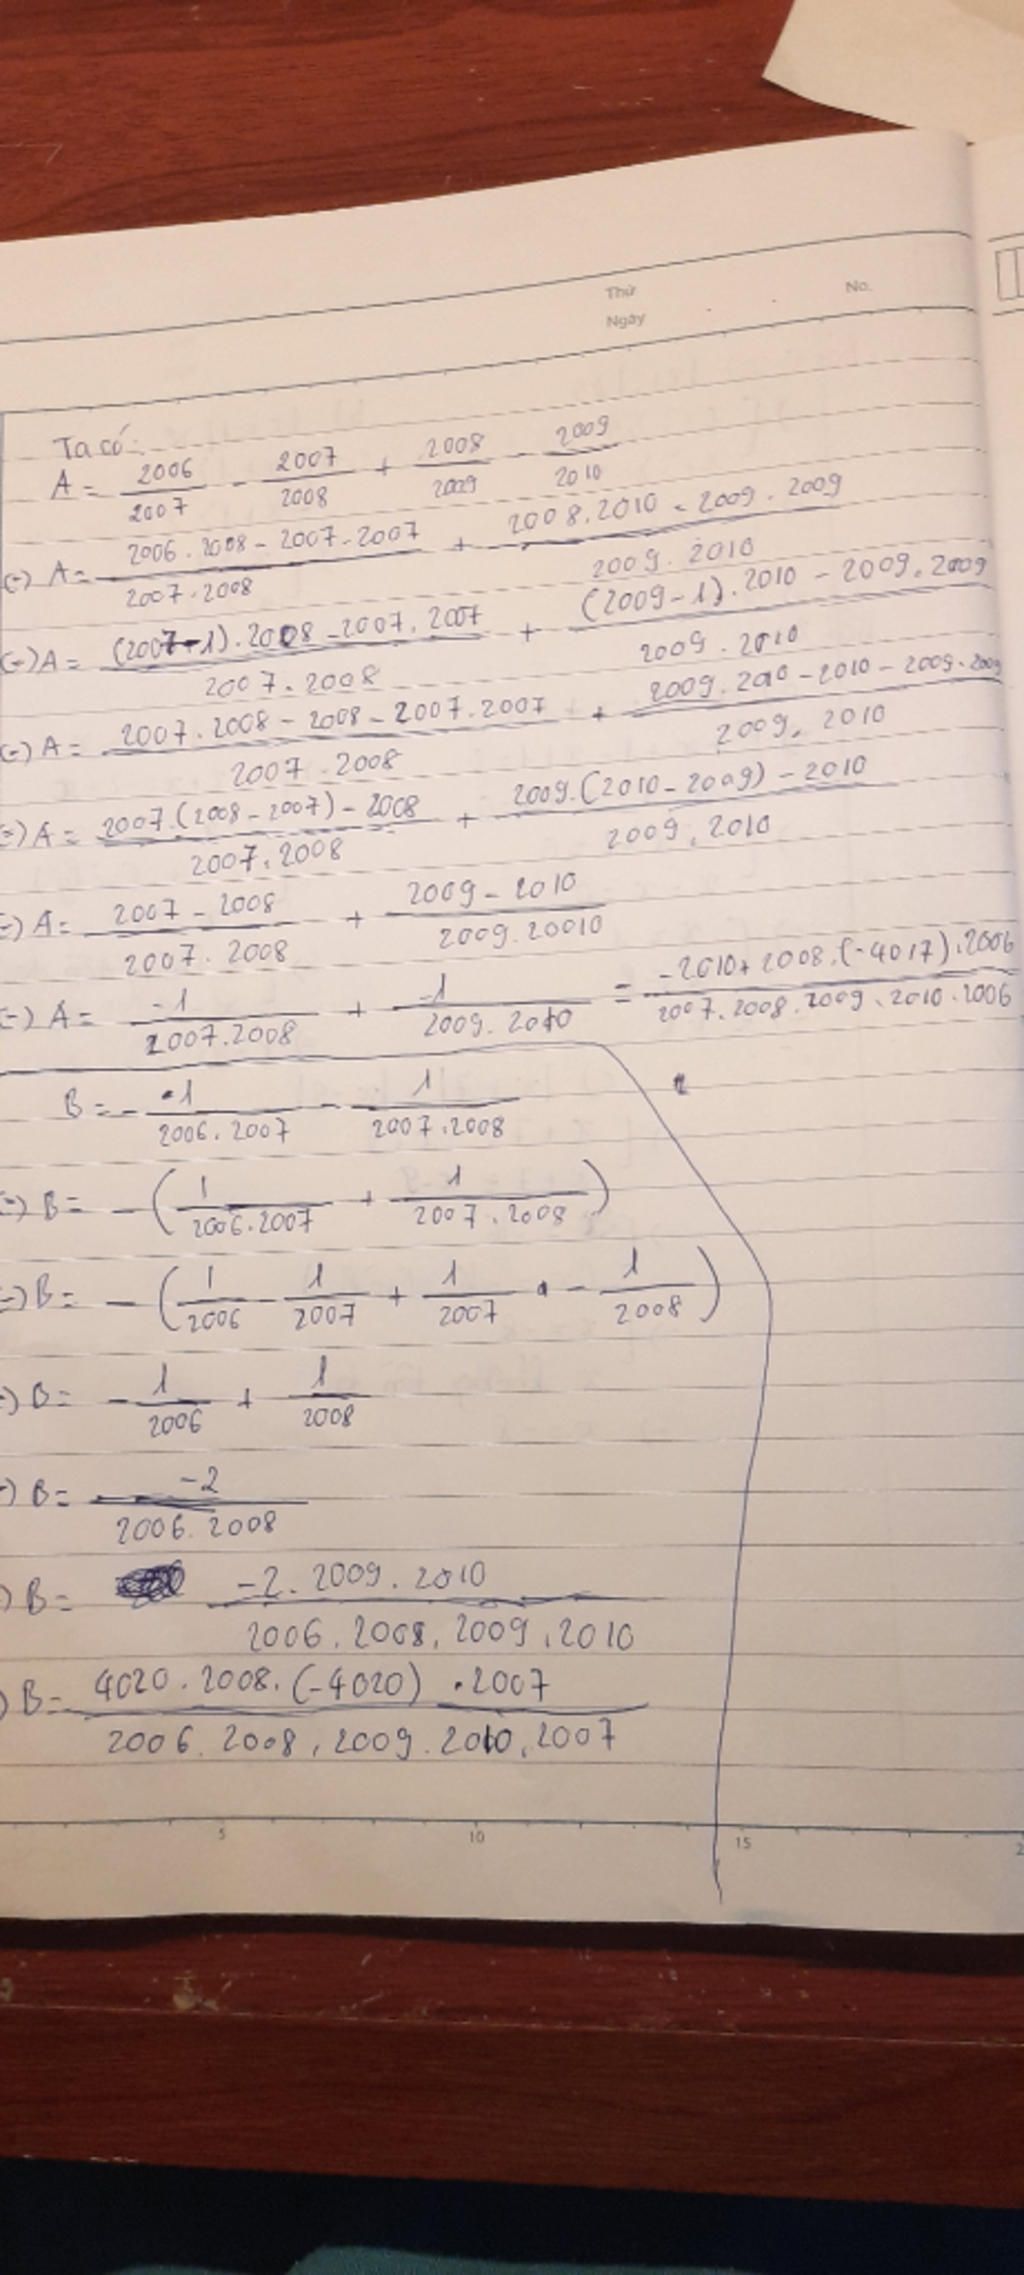 Thứ No.
Ngày
Ta có:
A = 2006/2007 - 2007/2008 + 2008/2009 - 2009/2010
(=) A = (2006.2008 - 2007.2007)/(2007.2008) + (2008.2010 - 2009.2009)/(2009.2010)
(=) A = ((2007-1).2008 - 2007.2007)/(2007.2008) + ((2009-1).2010 - 2009.2009)/(2009.2010)
(=) A = (2007.2008 - 2008 - 2007.2007)/(2007.2008) + (2009.2010 - 2010 - 2009.2009)/(2009.2010)
=) A = (2007.(2008 - 2007) - 2008)/(2007.2008) + (2009.(2010 - 2009) - 2010)/(2009.2010)
=) A = (2007 - 2008)/(2007.2008) + (2009 - 2010)/(2009.20010)
=) A = -1/(2007.2008) + -1/(2009.2010) = (-2010+2008.(-4017).2006)/(2007.2008.2009.2010.2006)
B = - 1/(2006.2007) - 1/(2007.2008)
(=) B = - (1/(2006.2007) + 1/(2007.2008))
=) B = - (1/2006 - 1/2007 + 1/2007 - 1/2008)
=) B = - 1/2006 + 1/2008
=) B = -2/(2006.2008)
) B = (-2.2009.2010)/(2006.2008.2009.2010)
) B = (4020.2008.(-4020).2007)/(2006.2008.2009.2010.2007)
5 10 15 2